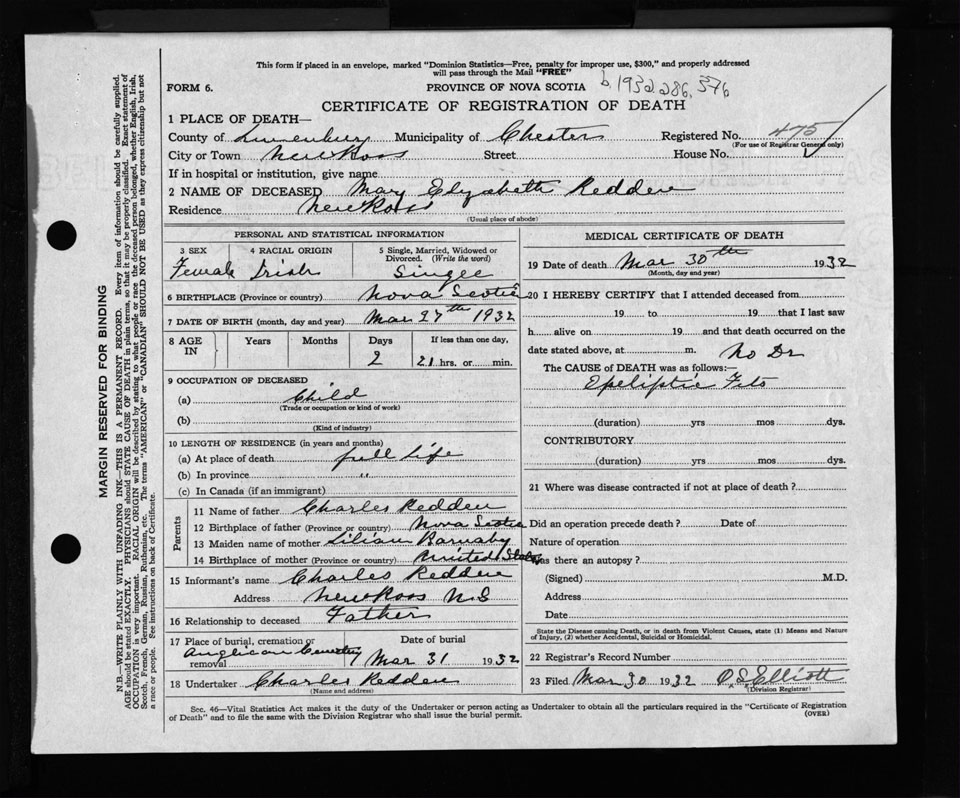 This form if placed in an envelope, marked "Dominion Statistics—Free, penalty for improper use, $300," and properly addressed
will pass through the Mail "FREE"
b. 1932 286, 376
FORM 6. PROVINCE OF NOVA SCOTIA
CERTIFICATE OF REGISTRATION OF DEATH
1 PLACE OF DEATH—
County of Lunenburg Municipality of Chester Registered No. 475
(For use of Registrar General only)
City or Town New Ross Street House No.
If in hospital or institution, give name
2 NAME OF DECEASED Mary Elyzabeth Redden
Residence New Ross
(Usual place of abode)
PERSONAL AND STATISTICAL INFORMATION
3 SEX 4 RACIAL ORIGIN 5 Single, Married, Widowed or
Divorced. (Write the word)
Female Irish Singel
6 BIRTHPLACE (Province or country) Nova Scotia
7 DATE OF BIRTH (month, day and year) Mar 27th 1932
8 AGE IN Years Months Days If less than one day,
2 21 hrs. or min.
9 OCCUPATION OF DECEASED
(a) Child
(Trade or occupation or kind of work)
(b)
(Kind of industry)
10 LENGTH OF RESIDENCE (in years and months)
(a) At place of death full life
(b) In province "
(c) In Canada (if an immigrant)
Parents
11 Name of father Charles Redden
12 Birthplace of father (Province or country) Nova Scotia
13 Maiden name of mother Liliann Barnaby
14 Birthplace of mother (Province or country) United States
15 Informant's name Charles Redden
Address New Ross N.S
16 Relationship to deceased Father
17 Place of burial, cremation or removal Date of burial
Anglican Cemetery Mar 31 1932
18 Undertaker Charles Redden
(Name and address)
MEDICAL CERTIFICATE OF DEATH
19 Date of death Mar 30th 1932
(Month, day and year)
20 I HEREBY CERTIFY that I attended deceased from
19 to 19 that I last saw
h alive on 19 and that death occurred on
date stated above, at m. No Dr
The CAUSE of DEATH was as follows:—
Epeliptic Fits
(duration) yrs mos dys.
CONTRIBUTORY
(duration) yrs mos dys.
21 Where was disease contracted if not at place of death?
Did an operation precede death? Date of
Nature of operation
Was there an autopsy?
(Signed) M.D.
Address
Date
State the Disease causing Death, or in death from Violent Causes, state (1) Means and Nature
of Injury, (2) whether Accidental, Suicidal or Homicidal.
22 Registrar's Record Number
23 Filed Mar 30 1932 O. S. Elliott
(Division Registrar)
Sec. 46—Vital Statistics Act makes it the duty of the Undertaker or person acting as Undertaker to obtain all the particulars required in the "Certificate of Registration
of Death" and to file the same with the Division Registrar who shall issue the burial permit. (OVER)
MARGIN RESERVED FOR BINDING
N.B.—WRITE PLAINLY WITH UNFADING INK—THIS IS A PERMANENT RECORD. Every item of information should be carefully supplied.
AGE should be stated EXACTLY. PHYSICIANS should STATE CAUSE OF DEATH in plain terms, so that it may be properly classified. Exact statement of
OCCUPATION is very important. RACIAL ORIGIN will be described by stating to what people or race the deceased person belonged, whether English, Irish,
Scotch, French, German, Russian, Ruthenian, etc. The terms "AMERICAN" or "CANADIAN" SHOULD NOT BE USED as they express citizenship but not
a race or people. See instructions on back of Certificate.